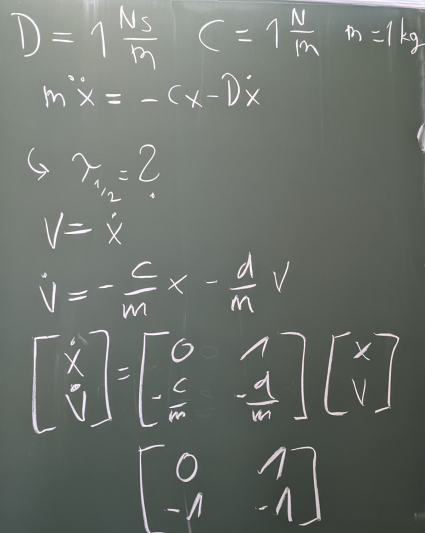 D = 1 Ns/m C = 1 N/m m = 1 kg
mẍ = - Cx - Dẋ
↳ λ₁/₂ = ?
V = ẋ
v̇ = - c/m x - d/m v
[ẋ; v̇] = [0 1; -c/m -d/m] [x; v]
[0 1; -1 -1]